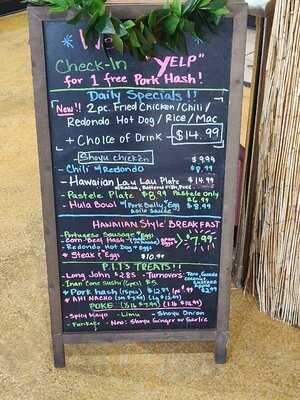 We
Check-In YELP"
for 1 free Pork Hash!
Daily Specials!!
New!! 2pc. Fried Chicken/Chili/
Redondo Hot Dog/Rice/Mac
+ Choice of Drink - $14.99
Shoyu chicken $9.99
- Chili w/Redondo $8.99
- Hawaiian Lau Lau Plate $14.99
- Pastele Plate $8.99 Pastele only
- Hula Bowl Pork Belly, Egg $8.99
HAWAIIAN Style BREAKFAST
- Portuguese Sausage + Eggs
- Corn Beef Hash $7.99
- Redondo Hot Dog + Eggs
* Steak & Eggs $10.99
P.I.T'S TREATS!!
- Long John $2.85 - Turnovers
- Inari Cone Sushi
* Pork hash $12.99
* AHI NACHO
POKE
- Spicy Mayo - Limu - Shoyu Onion
- Furikake - Hno: Shoyu Ginger or Garlic